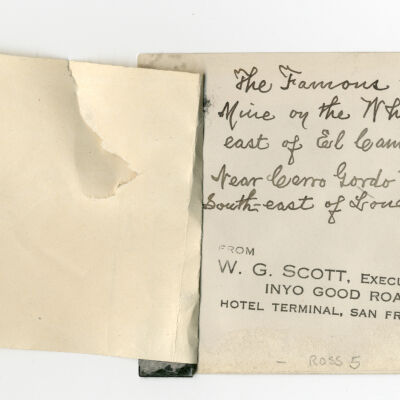 The Famous
Mine on the Wh
east of El Cam
Near Cerro Gordo
South-east of Lone
FROM
W. G. SCOTT, EXECU
INYO GOOD ROA
HOTEL TERMINAL, SAN FR
- ROSS 5